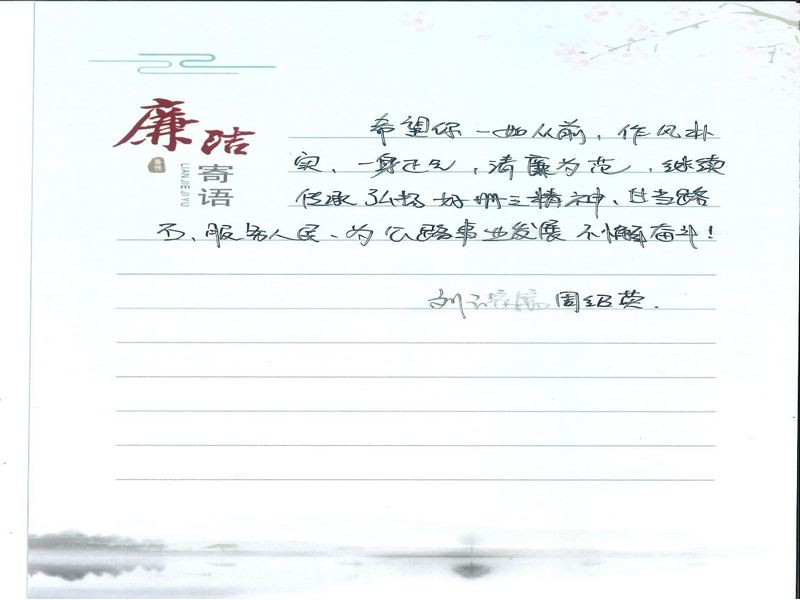 廉洁
寄语
LIANJIEJIYU
希望你一如从前，作风朴
实、一身正气，清廉为范，继续
传承弘扬好
精神、甘当路
石、服务人民、为公路事业发展不懈奋斗！
刘
周绍英.